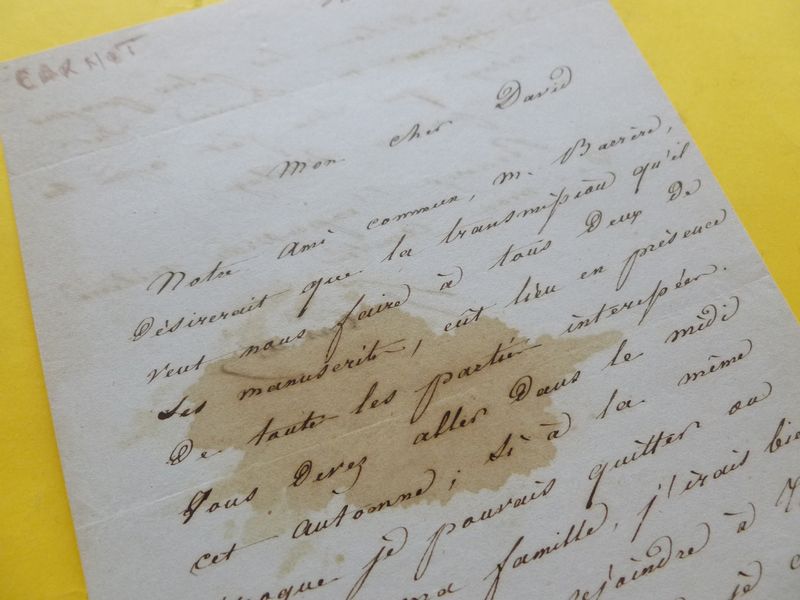 CARNOT
Mon cher David
Notre ami commun, M. Barère,
désirerait que la transmission qu'il
veut nous faire à tous deux de
ses manuscrits, eût lieu en présence
de toutes les parties intéressées.
Vous devez aller dans le midi
cet automne; si à la même
époque je pouvais quitter
ma famille, j'irais
rejoindre à
je